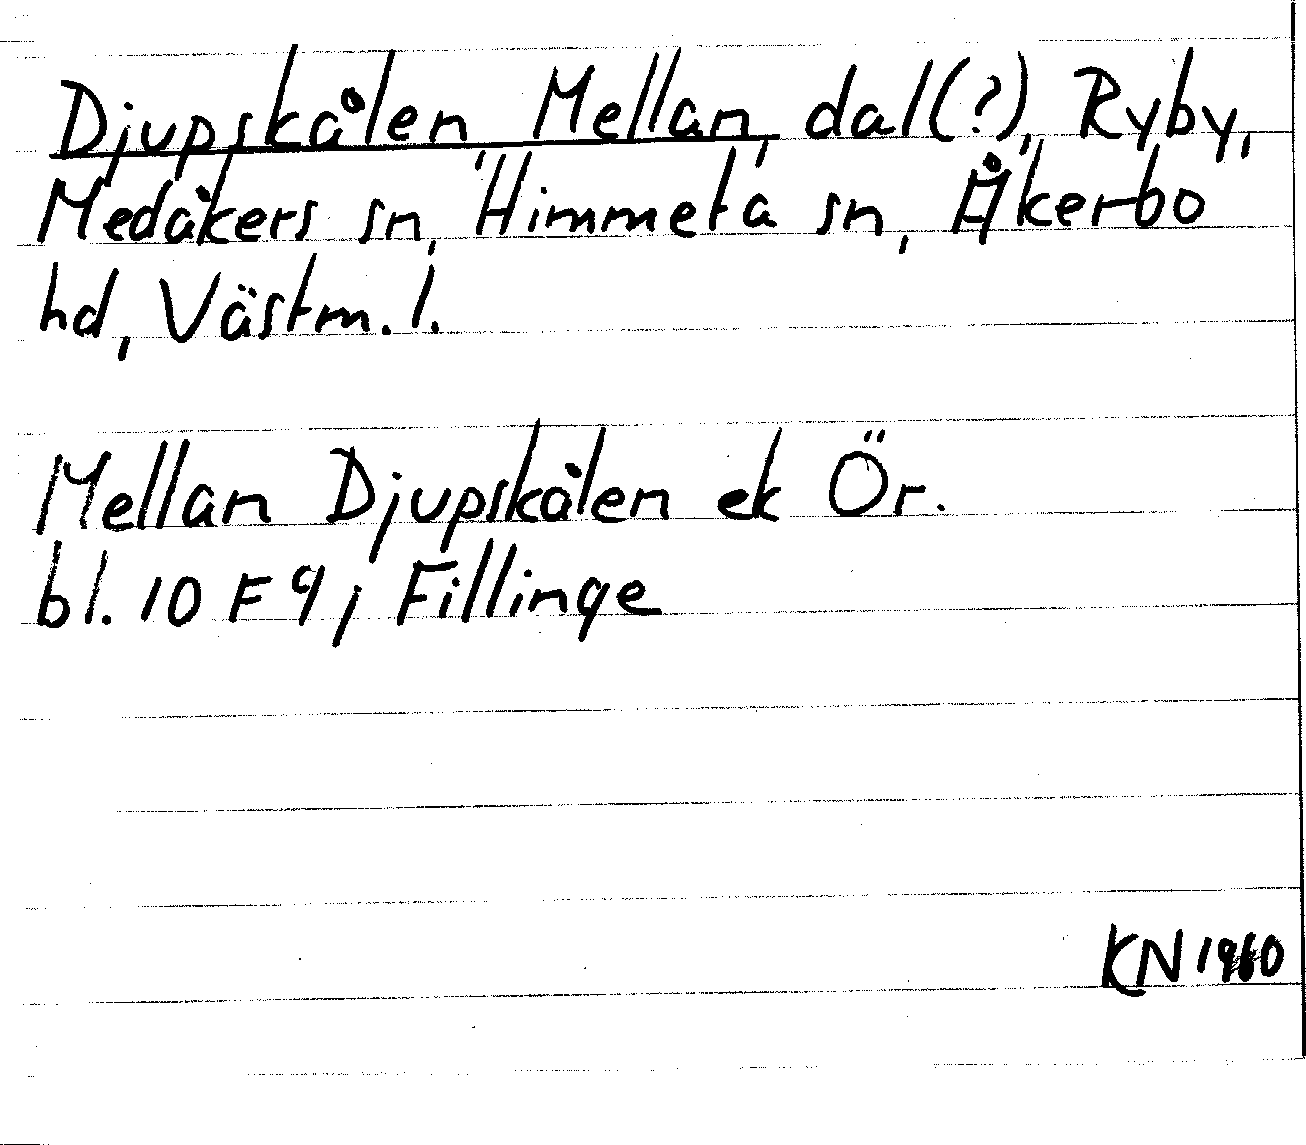 Djupskålen, Mellan, dal(?), Ryby,
Medåkers sn, Himmeta sn, Åkerbo
hd, Västm. l.
Mellan Djupskålen ek Ör.
bl. 10 F 9; Fillinge
KN 1960